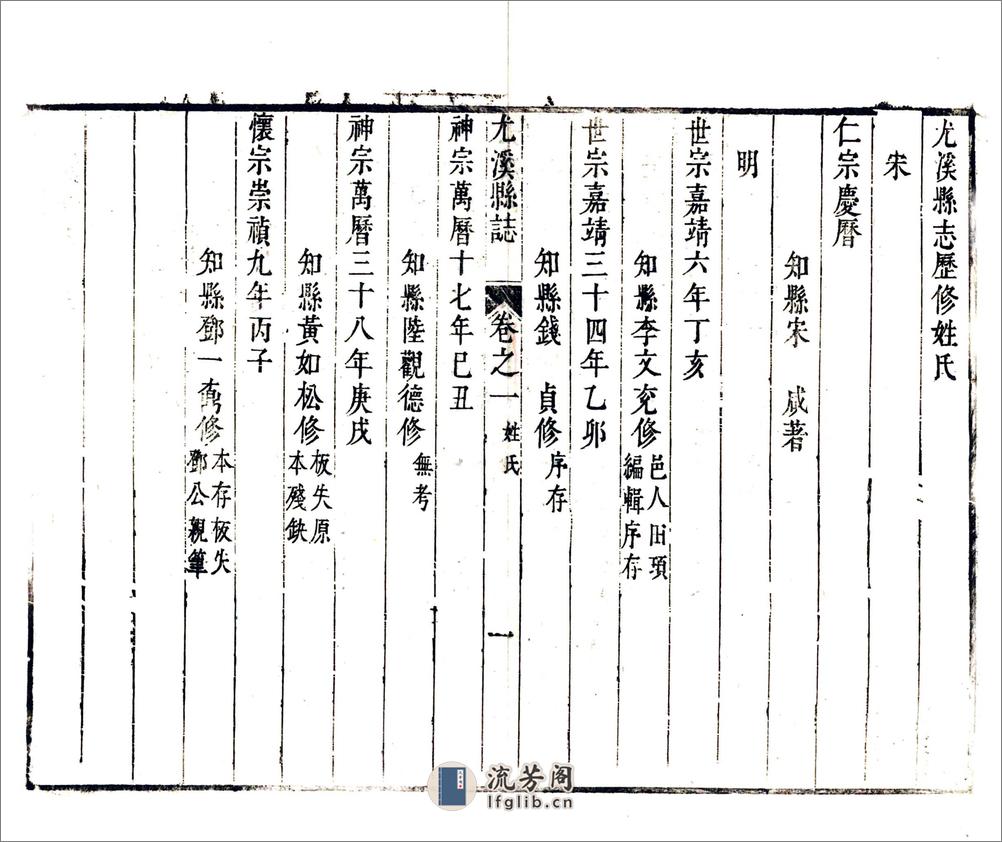 尤溪縣志歷修姓氏
宋
仁宗慶曆
知縣宋　咸著
明
世宗嘉靖六年丁亥
知縣李文兖修邑人田頊編輯序存
世宗嘉靖三十四年乙卯
知縣錢　貞修序存
尤溪縣誌　卷之一　姓氏　一
神宗萬曆十七年已丑
知縣陸觀德修無考
神宗萬曆三十八年庚戌
知縣黃如松修板失原本殘缺
懷宗崇禎九年丙子
知縣鄧一鼒修本存板失鄧公親筆
流芳阁
lfglib.cn